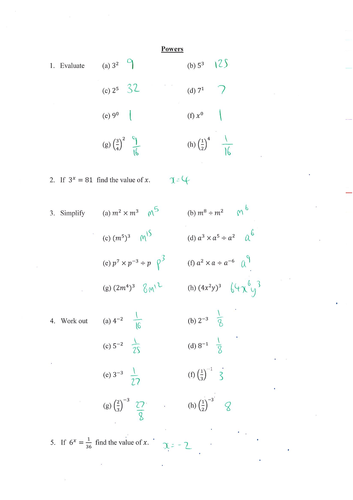 Powers
1. Evaluate (a) 3² 9 (b) 5³ 125
(c) 2⁵ 32 (d) 7¹ 7
(e) 9⁰ 1 (f) x⁰ 1
(g) (3/4)² 9/16 (h) (1/2)⁴ 1/16
2. If 3ˣ = 81 find the value of x. x=4
3. Simplify (a) m² × m³ m⁵ (b) m⁸ ÷ m² m⁶
(c) (m⁵)³ m¹⁵ (d) a³ × a⁵ ÷ a² a⁶
(e) p⁷ × p⁻³ ÷ p p³ (f) a² × a ÷ a⁻⁶ a⁹
(g) (2m⁴)³ 8m¹² (h) (4x²y)³ 64x⁶y³
4. Work out (a) 4⁻² 1/16 (b) 2⁻³ 1/8
(c) 5⁻² 1/25 (d) 8⁻¹ 1/8
(e) 3⁻³ 1/27 (f) (1/3)⁻¹ 3
(g) (2/3)⁻³ 27/8 (h) (1/2)⁻³ 8
5. If 6ˣ = 1/36 find the value of x. x=-2